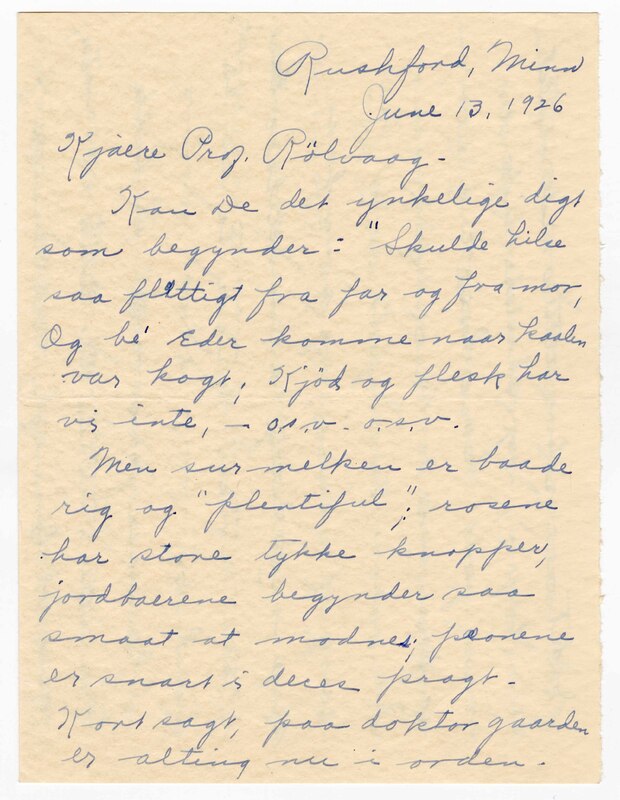 Rushford, Minn
June 13, 1926
Kjaere Prof. Rölvaag -
Kan De det ynkelige digt
som begynder: "Skulde hilse
saa flittigt fra far og fra mor,
Og be' Eder komme naar kaalen
var kogt; Kjöd og flesk har
vi inte, - o.s.v. o.s.v.
Men surmelken er baade
rig og "plentiful"; rosene
har store tykke knopper,
jordbaerene begynder saa
smaat at modnes; pæonene
er snart i deres pragt -
Kort sagt, paa doktor gaarden
er alting nu i orden.